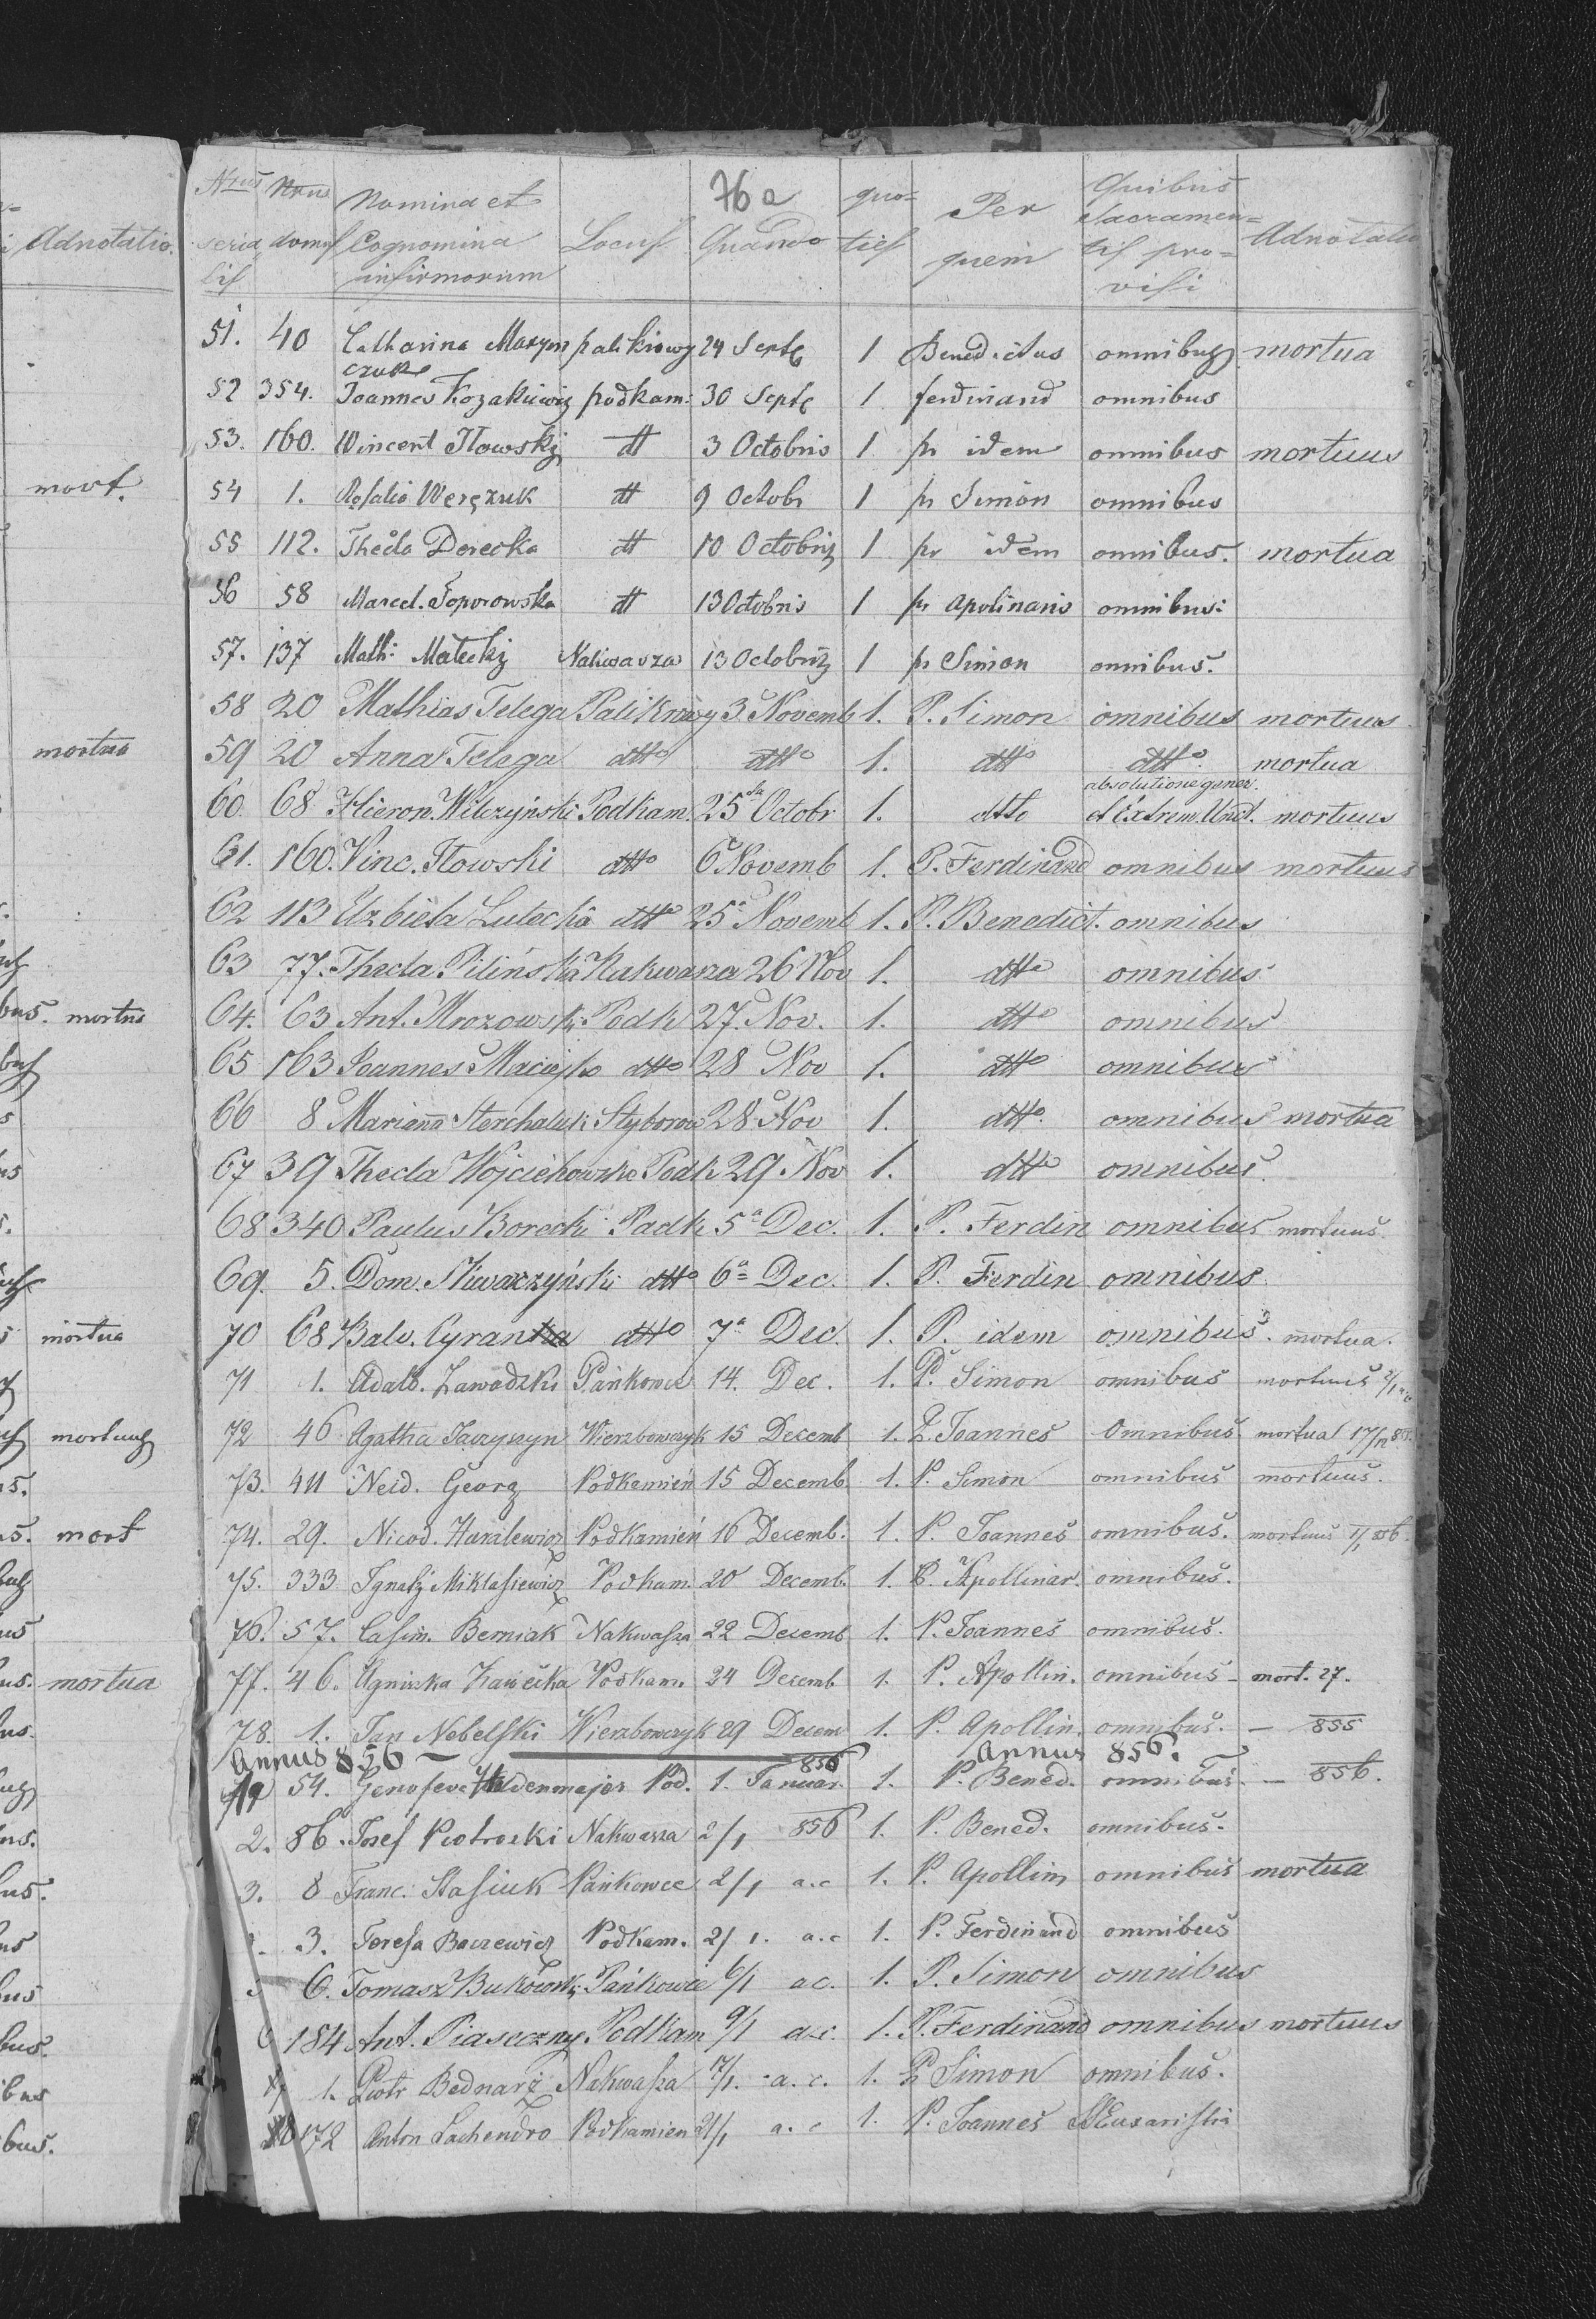 Adnotatio.
mort.
mortua
bus. mortus
mortua
mortuus
mort
us. mortua
76a
Nrus seria lis Nrus domus Nomina et Cognomina infirmorum Locus Quando quo= ties Per quem Quibus Sacramen= tis pro= visi Adnotatio
51. 40 Catharina Marym czuk palikrowy 24 Septb 1 Benedictus omnibus mortua
52 354. Joannes Kozakiewicz podkam: 30 Septb 1 ferdinand omnibus
53. 160. Wincent Iłowskj dt 3 Octobris 1 pr idem omnibus mortuus
54 1. Rosalia Weręzuk dt 9 Octobr 1 pr Simon omnibus
55 112. Thecla Derecka dt 10 Octobris 1 pr idem omnibus. mortua
56 58 Marcel. Soporowska dt 13 Octobris 1 pr Apolinaris omnibus:
57. 137 Math: Małeckj Nakwasza 13 Octobris 1 pr Simon omnibus.
58 20 Mathias Telega Palikrowy 3 Novemb 1. P. Simon omnibus mortuus
59 20 Anna Telega dtto dtto 1. dtto dtto mortua
60. 68 Hieron. Wilczyński Podkam. 25ta Octobr 1. dtto absolutione gener. et Extrem. Unct. mortuus
61. 160. Vinc. Iłowski dtto 6 Novemb 1. P. Ferdinand omnibus mortuus
62 113 Elzbieta Lutecka dtto 25a Novemb 1. P. Benedict. omnibus
63 77. Thecla Pilińska Nakwasza 26 Nov 1. dtto omnibus
64. 63 Ant. Mrozowski Podk 27. Nov. 1. dtto omnibus
65 163 Joannes Maciejko dtto 28 Nov 1. dtto omnibus
66 8 Marianna Sterchaluk Styborow 28 Nov 1. dtto. omnibus mortua
67 39 Thecla Wojciehowska Podk 29. Nov 1. dtto omnibus.
68 340 Paulus Borecki Podk 5a Dec. 1. P. Ferdin omnibus mortuus
69. 5. Dom. Skwarzyński dtto 6a Dec. 1. P. Ferdin omnibus
70 68 Balv. Cyranka dtto 7a Dec. 1. P. idem omnibus. mortua.
71 1. Adalb. Zawadzki Pańkowce 14. Dec. 1. P. Simon omnibus mortuus
72 46 Agatha Wierzbowczyk 15 Decemb 1. P. Joannes Omnibus mortua 17/12 855.
73. 411 Neid. Georg Podkamień 15 Decemb. 1. P. Simon omnibus mortuus.
74. 29. Nicod. Haralewicz Podkamień 16 Decemb. 1. P. Joannes omnibus. mortuus 856.
75. 333 Ignatz Miklasiewicz Podkam. 20 Decemb. 1. P. Apollinar. omnibus.
76. 57. Casim. Berniak Nakwasza 22 Decemb 1. P. Joannes omnibus.
77. 46. Agniszka Podkam. 24 Decemb 1. P. Apollin. omnibus – mort. 27.
78. 1. Jan Nebelski Wierzbowczyk 29 Decem 1. P. Apollin. omnibus. – 855
Annus 856 – Annus 856.
54. Genofeva Haldenmajer Pod. 1. Januar. 856 1. P. Bened. omnibus. – 856.
2. 86. Josef Piotroski Nakwasza 2/1 856 1. P. Bened. omnibus.
3. 8 Franc. Stasiuk Pańkowce 2/1 a.c 1. P. Apollin omnibus mortua
3. Teresa Baczewicz Podkam. 2/1. a.c 1. P. Ferdinand omnibus
6. Tomasz Bukowski Pańkowce 6/1 ac. 1. P. Simon omnibus
6 184 Ant. Piaseczny Podkam 9/1 a.c. 1. P. Ferdinand omnibus mortuus
7 1. Piotr Bednarz Nakwasza 17/1. a.c. 1. P. Simon omnibus.
172 Anton Lachendro Podkamien 21/1 a.c 1. P. Joannes Euxaristia